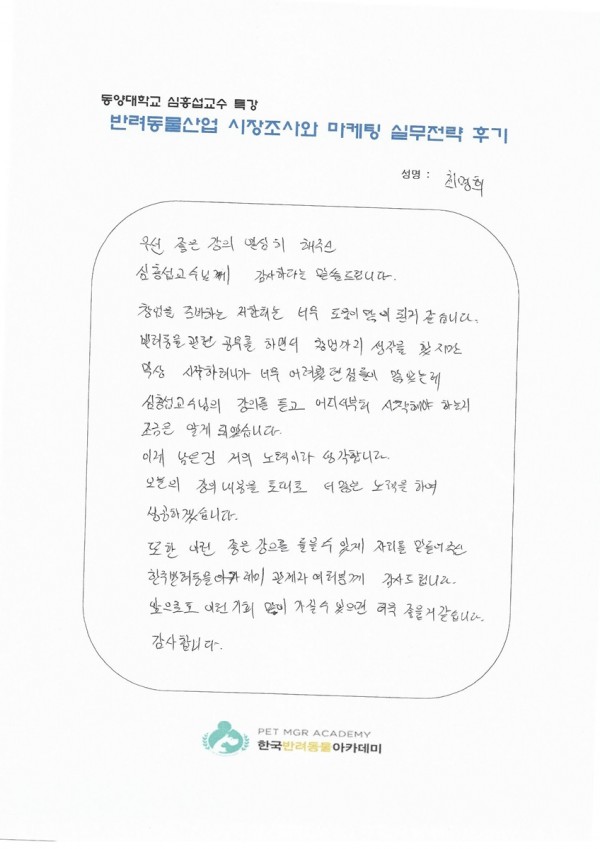 동양대학교 심흥섭교수 특강
반려동물산업 시장조사와 마케팅 실무전략 후기
성명 : 최영희
우선 좋은 강의 열심히 해주신
심흥섭교수님께 감사하다는 말씀드립니다.
창업을 준비하는 저한테는 너무 도움이 많이 된거 같습니다.
반려동물 관련 공부를 하면서 창업까지 생각을 했지만
막상 시작하려니까 너무 어려웠던 점들이 많았는데
심흥섭교수님의 강의를 듣고 어디서부터 시작해야 하는지
조금은 알게 되었습니다.
이제 남은건 저의 노력이라 생각합니다.
오늘의 강의 내용을 토대로 더 많은 노력을 하여
성공하겠습니다.
또한 이런 좋은 강의를 들을수 있게 자리를 만들어주신
한국반려동물아카데미 관계자 여러분께 감사드립니다.
앞으로도 이런 기회 많이 가질수 있으면 더욱 좋을거 같습니다.
감사합니다.
PET MGR ACADEMY
한국반려동물아카데미